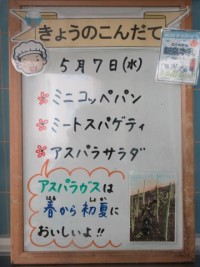 きょうのこんだて
5月7日(水)
ミニコッペパン
ミートスパゲティ
アスパラサラダ
アスパラガスは
春から初夏に
おいしいよ!!